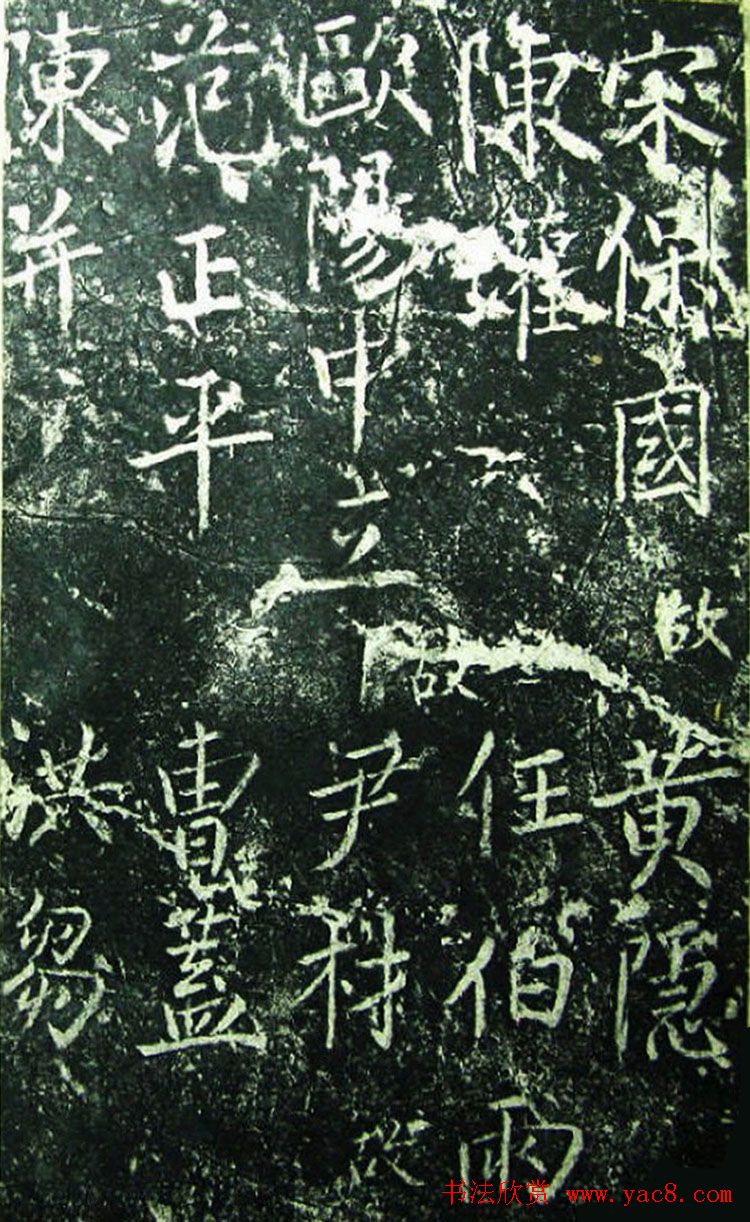 宋保國 故 黃隱
陳瓘 任伯雨
歐陽中立 故 尹材 故
范正平 曹蓋
陳并 洪芻
书法欣赏 www.yac8.com